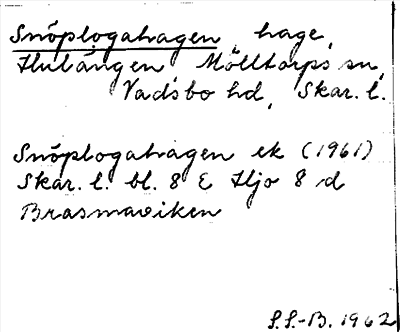 Snöplogahagen hage,
Hulängen Mölltorps sn,
Vadsbo hd, Skar. l.
Snöplogahagen ek (1961)
Skar. l. bl. 8 E Hjo 8 d
Brasmaviken
S.S.-B. 1962